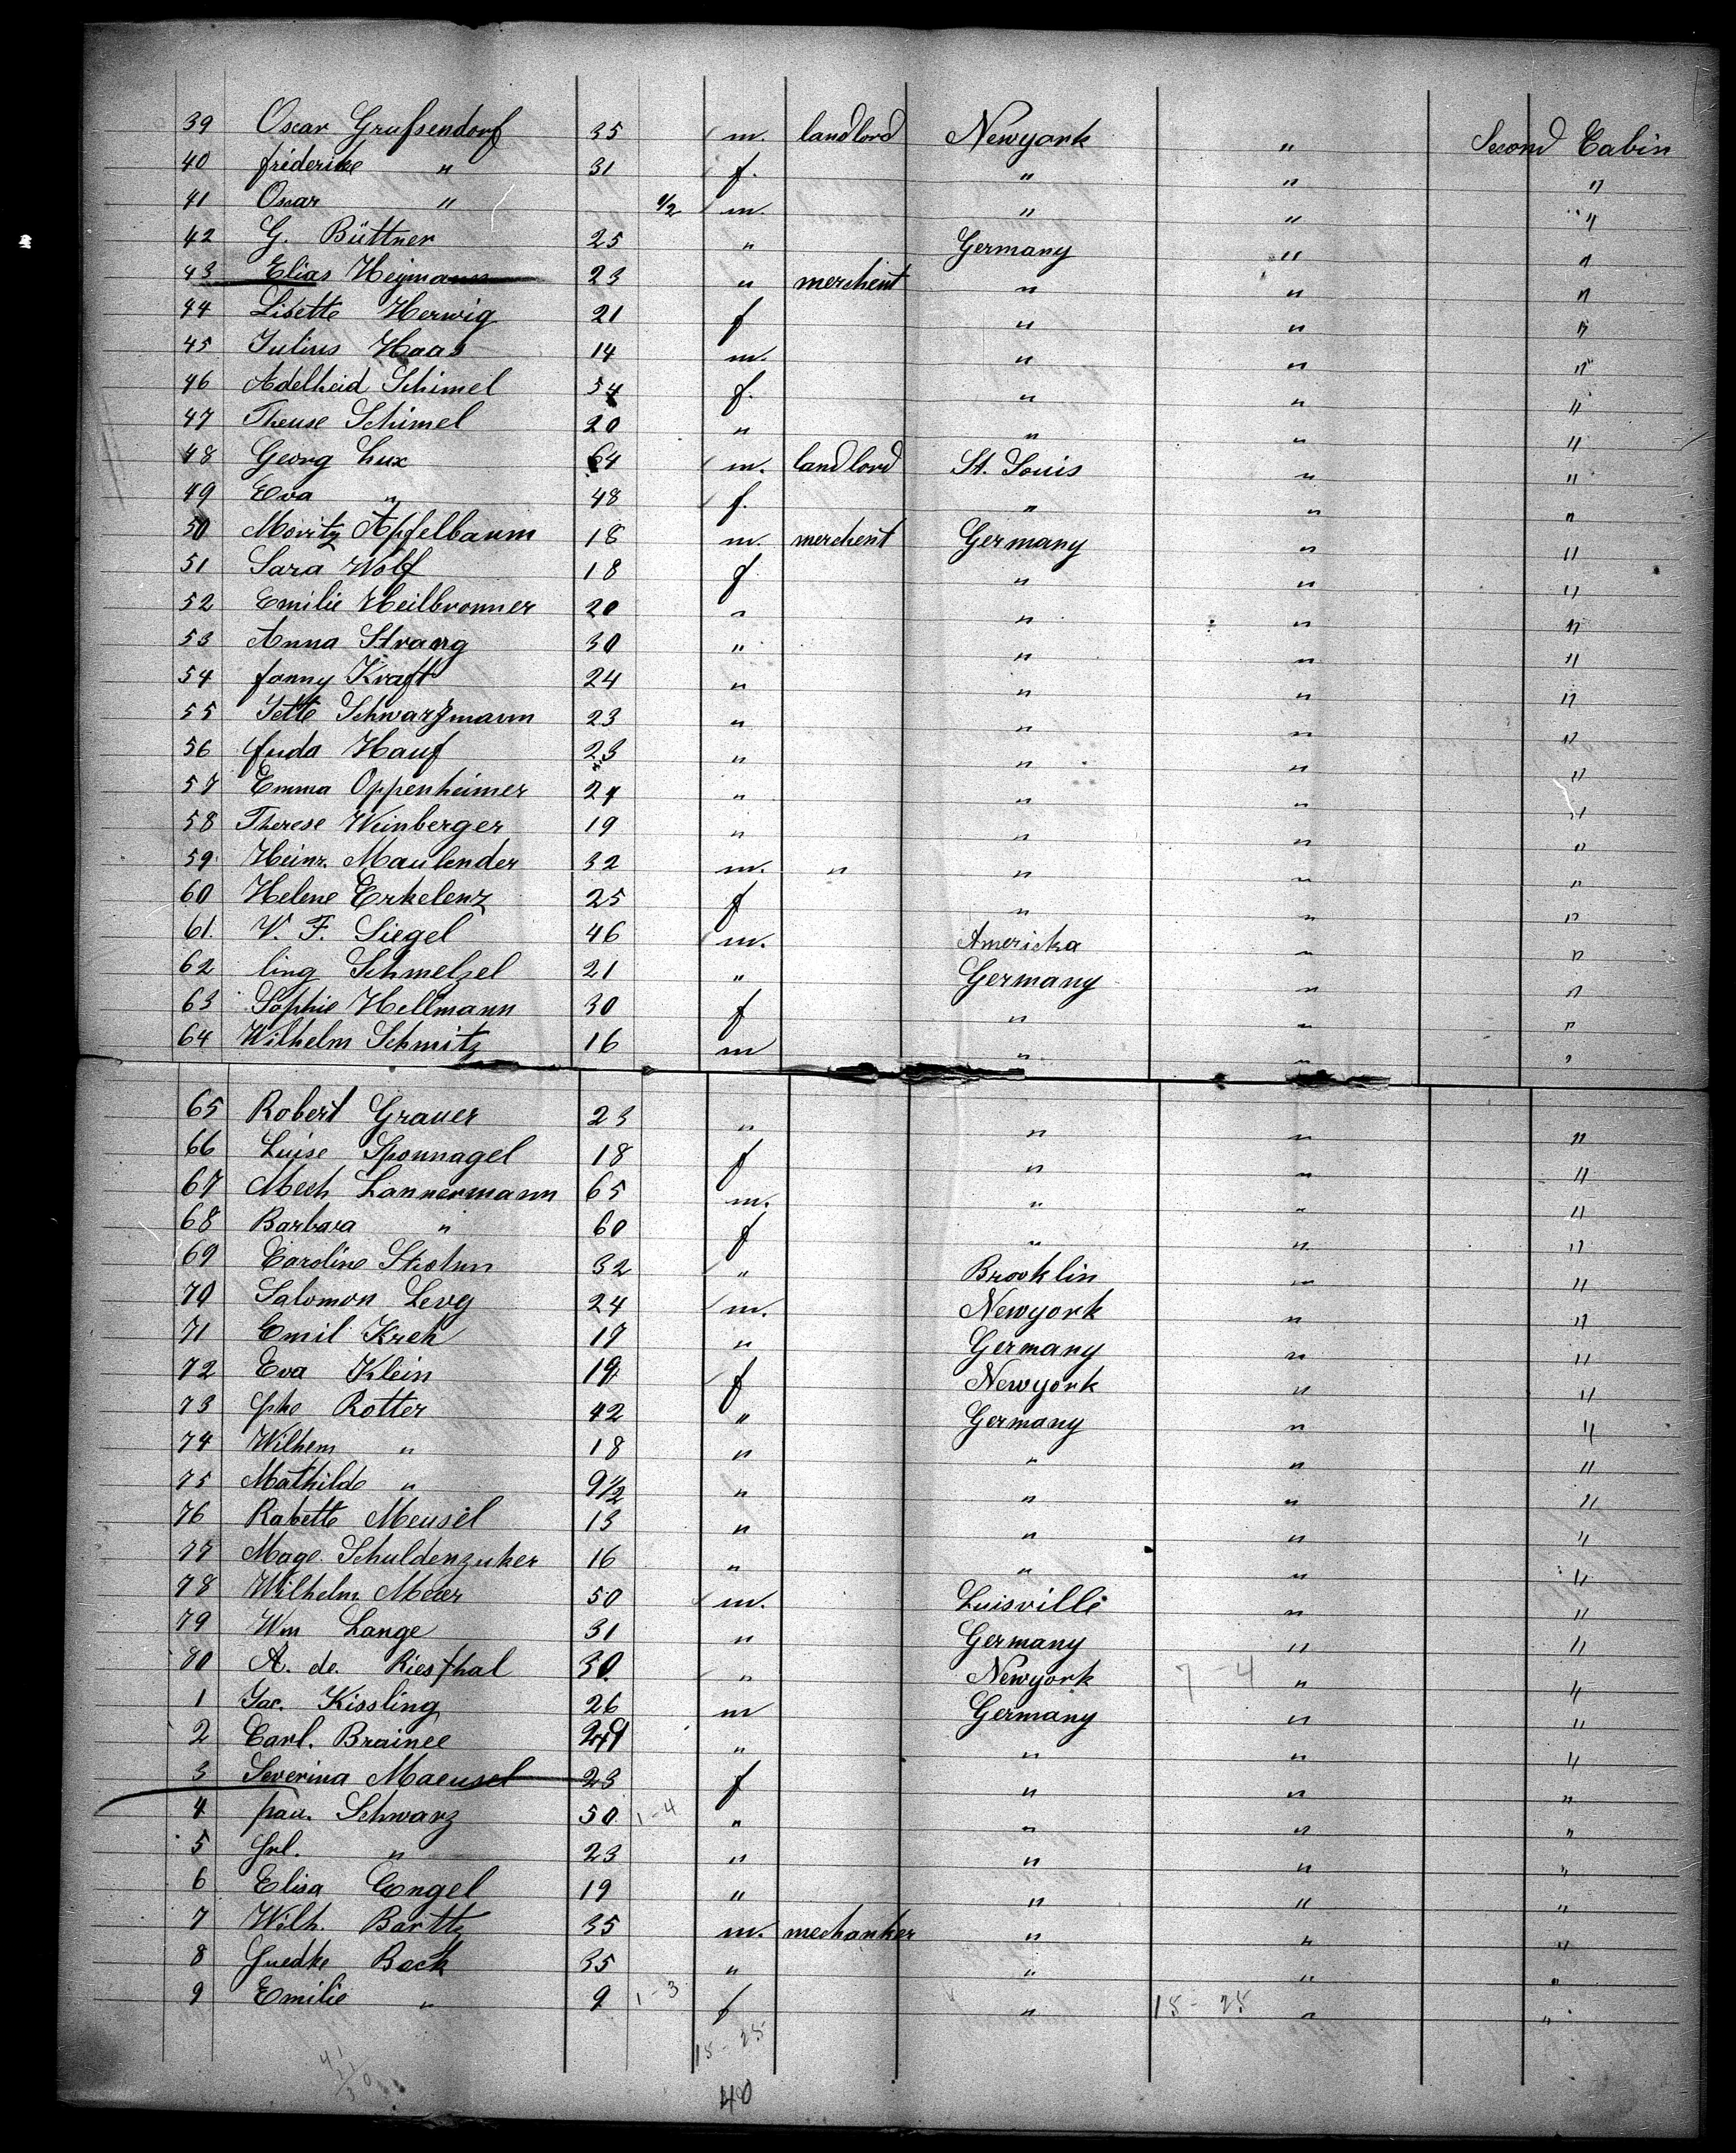 39 Oscar Grufsendorf 35 m. landlord Newyork " Second Cabin
40 friderike " 31 f. " " "
41 Oscar " 1/2 m. " " "
42 G. Büttner 25 " Germany " "
43 Elias Heymann 23 " merchent " " "
44 Lisette Herwig 21 f " " "
45 Julius Haas 14 m. " " "
46 Adelheid Schimel 54 f. " " "
47 Schimel 20 " " " "
48 Georg Lux 64 m. landlord St. Louis " "
49 Eva " 48 f. " " "
50 Moritz Apfelbaum 18 m. merchent Germany " "
51 Sara Wolf 18 f " " "
52 Emilie Heilbronner 20 " " " "
53 Anna Strang 30 " " " "
54 fanny Kraft 24 " " " "
55 Jette Schwarzmann 23 " " " "
56 Hauf 23 " " " "
57 Emma Oppenheimer 24 " " " "
58 Therese Weinberger 19 " " " "
59 Heinr. Maulender 32 m. " " " "
60 Helene Erkelenz 25 f " " "
61. V. F. Siegel 46 m. Americka " "
62 Schmelzel 21 " Germany " "
63 Sophie Hellmann 30 f " " "
64 Wilhelm Schmitz 16 m " " "
65 Robert Grauer 23 " " " "
66 Luise Sponnagel 18 f " " "
67 Mech Lannermann 65 m. " " "
68 Barbara " 60 f " " "
69 Caroline 32 " Brooklin " "
70 Salomon Levy 24 m. Newyork " "
71 Emil Kreh 17 " Germany " "
72 Eva Klein 19 f Newyork " "
73 Rotter 42 " Germany " "
74 Wilhem " 18 " " " "
75 Mathilde " 9 1/2 " " " "
76 Rabette Meusel 13 " " " "
77 Mage. Schuldenzuker 16 " " " "
78 Wilhelm Meier 50 m. Luisville " "
79 Wm Lange 31 " Germany " "
80 A. de. Riesthal 30 " Newyork 7-4 " "
1 Jac. Kissling 26 m Germany " "
2 Carl. Brainee " " " "
3 Severina Maeusel 23 f " " "
4 Schwarz 50 1-4 " " " "
5 frl. " 23 " " " "
6 Elisa Engel 19 " " " "
7 Wilh. Bartts 35 m. mechanker " " "
8 Beck 35 " " " "
9 Emilie " 9 1-3 f " 15-25 " "
15-25
40